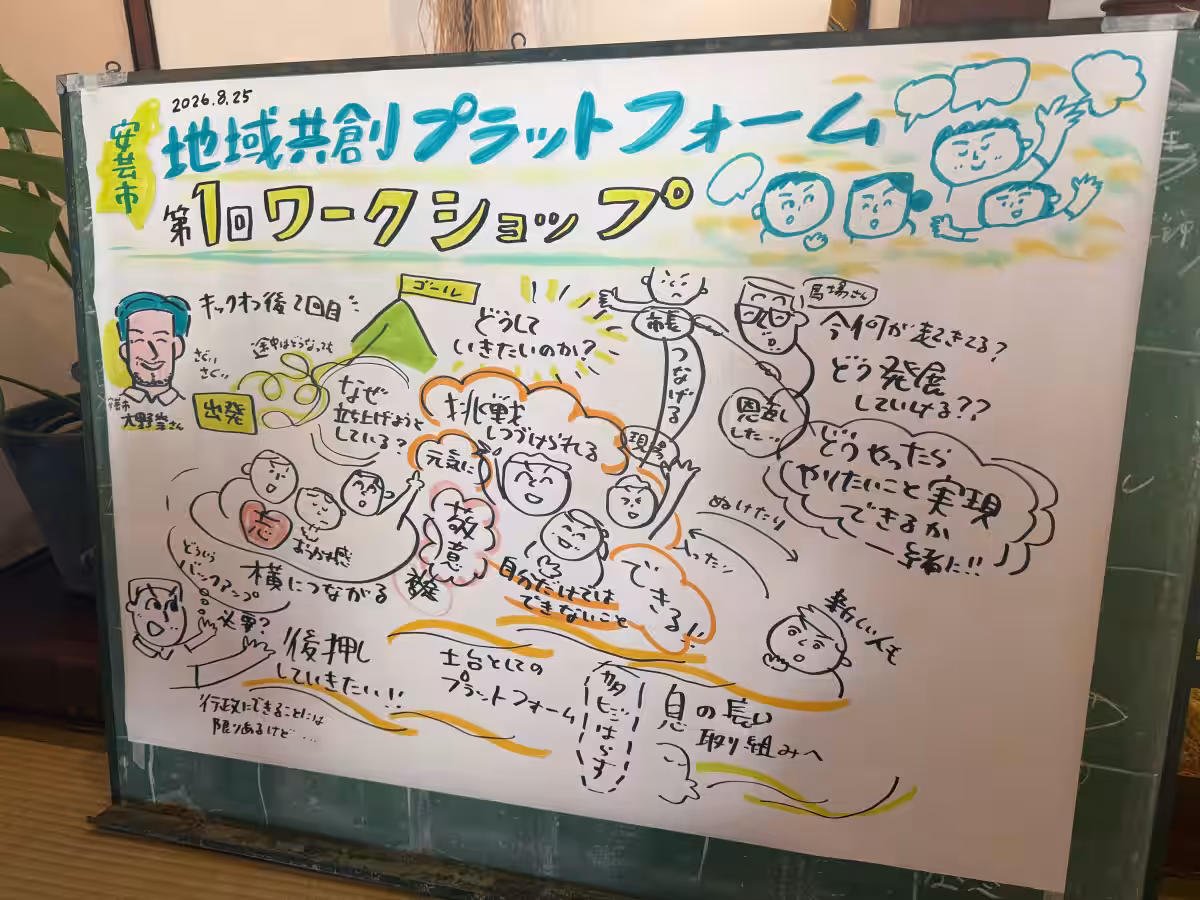 2026.8.25
安芸市
地域共創プラットフォーム
第1回ワークショップ
キックオフ後2回目
ゴール
途中はどうなっても
さぐい
さぐい
出発
大野崇さん
どうして
いきたいのか?
なぜ
立ち上げようと
している?
市長
つなげる
現場
馬場さん
今何が起きてる?
どう発展
していける??
恩返し
した…
挑戦
しつづけられる
元気に
敬意
どうやったら
やりたいこと実現
できるか
一緒に!!
ぬけたり
入ったり
志
横につながる
どういう
バックアップ
必要?
自分だけでは
できないこと
できる!!
新しい人も
後押し
していきたい!!
行政にできることには
限りあるけど…
土台としての
プラットフォーム
カタヒジはらず
息の長い
取り組みへ